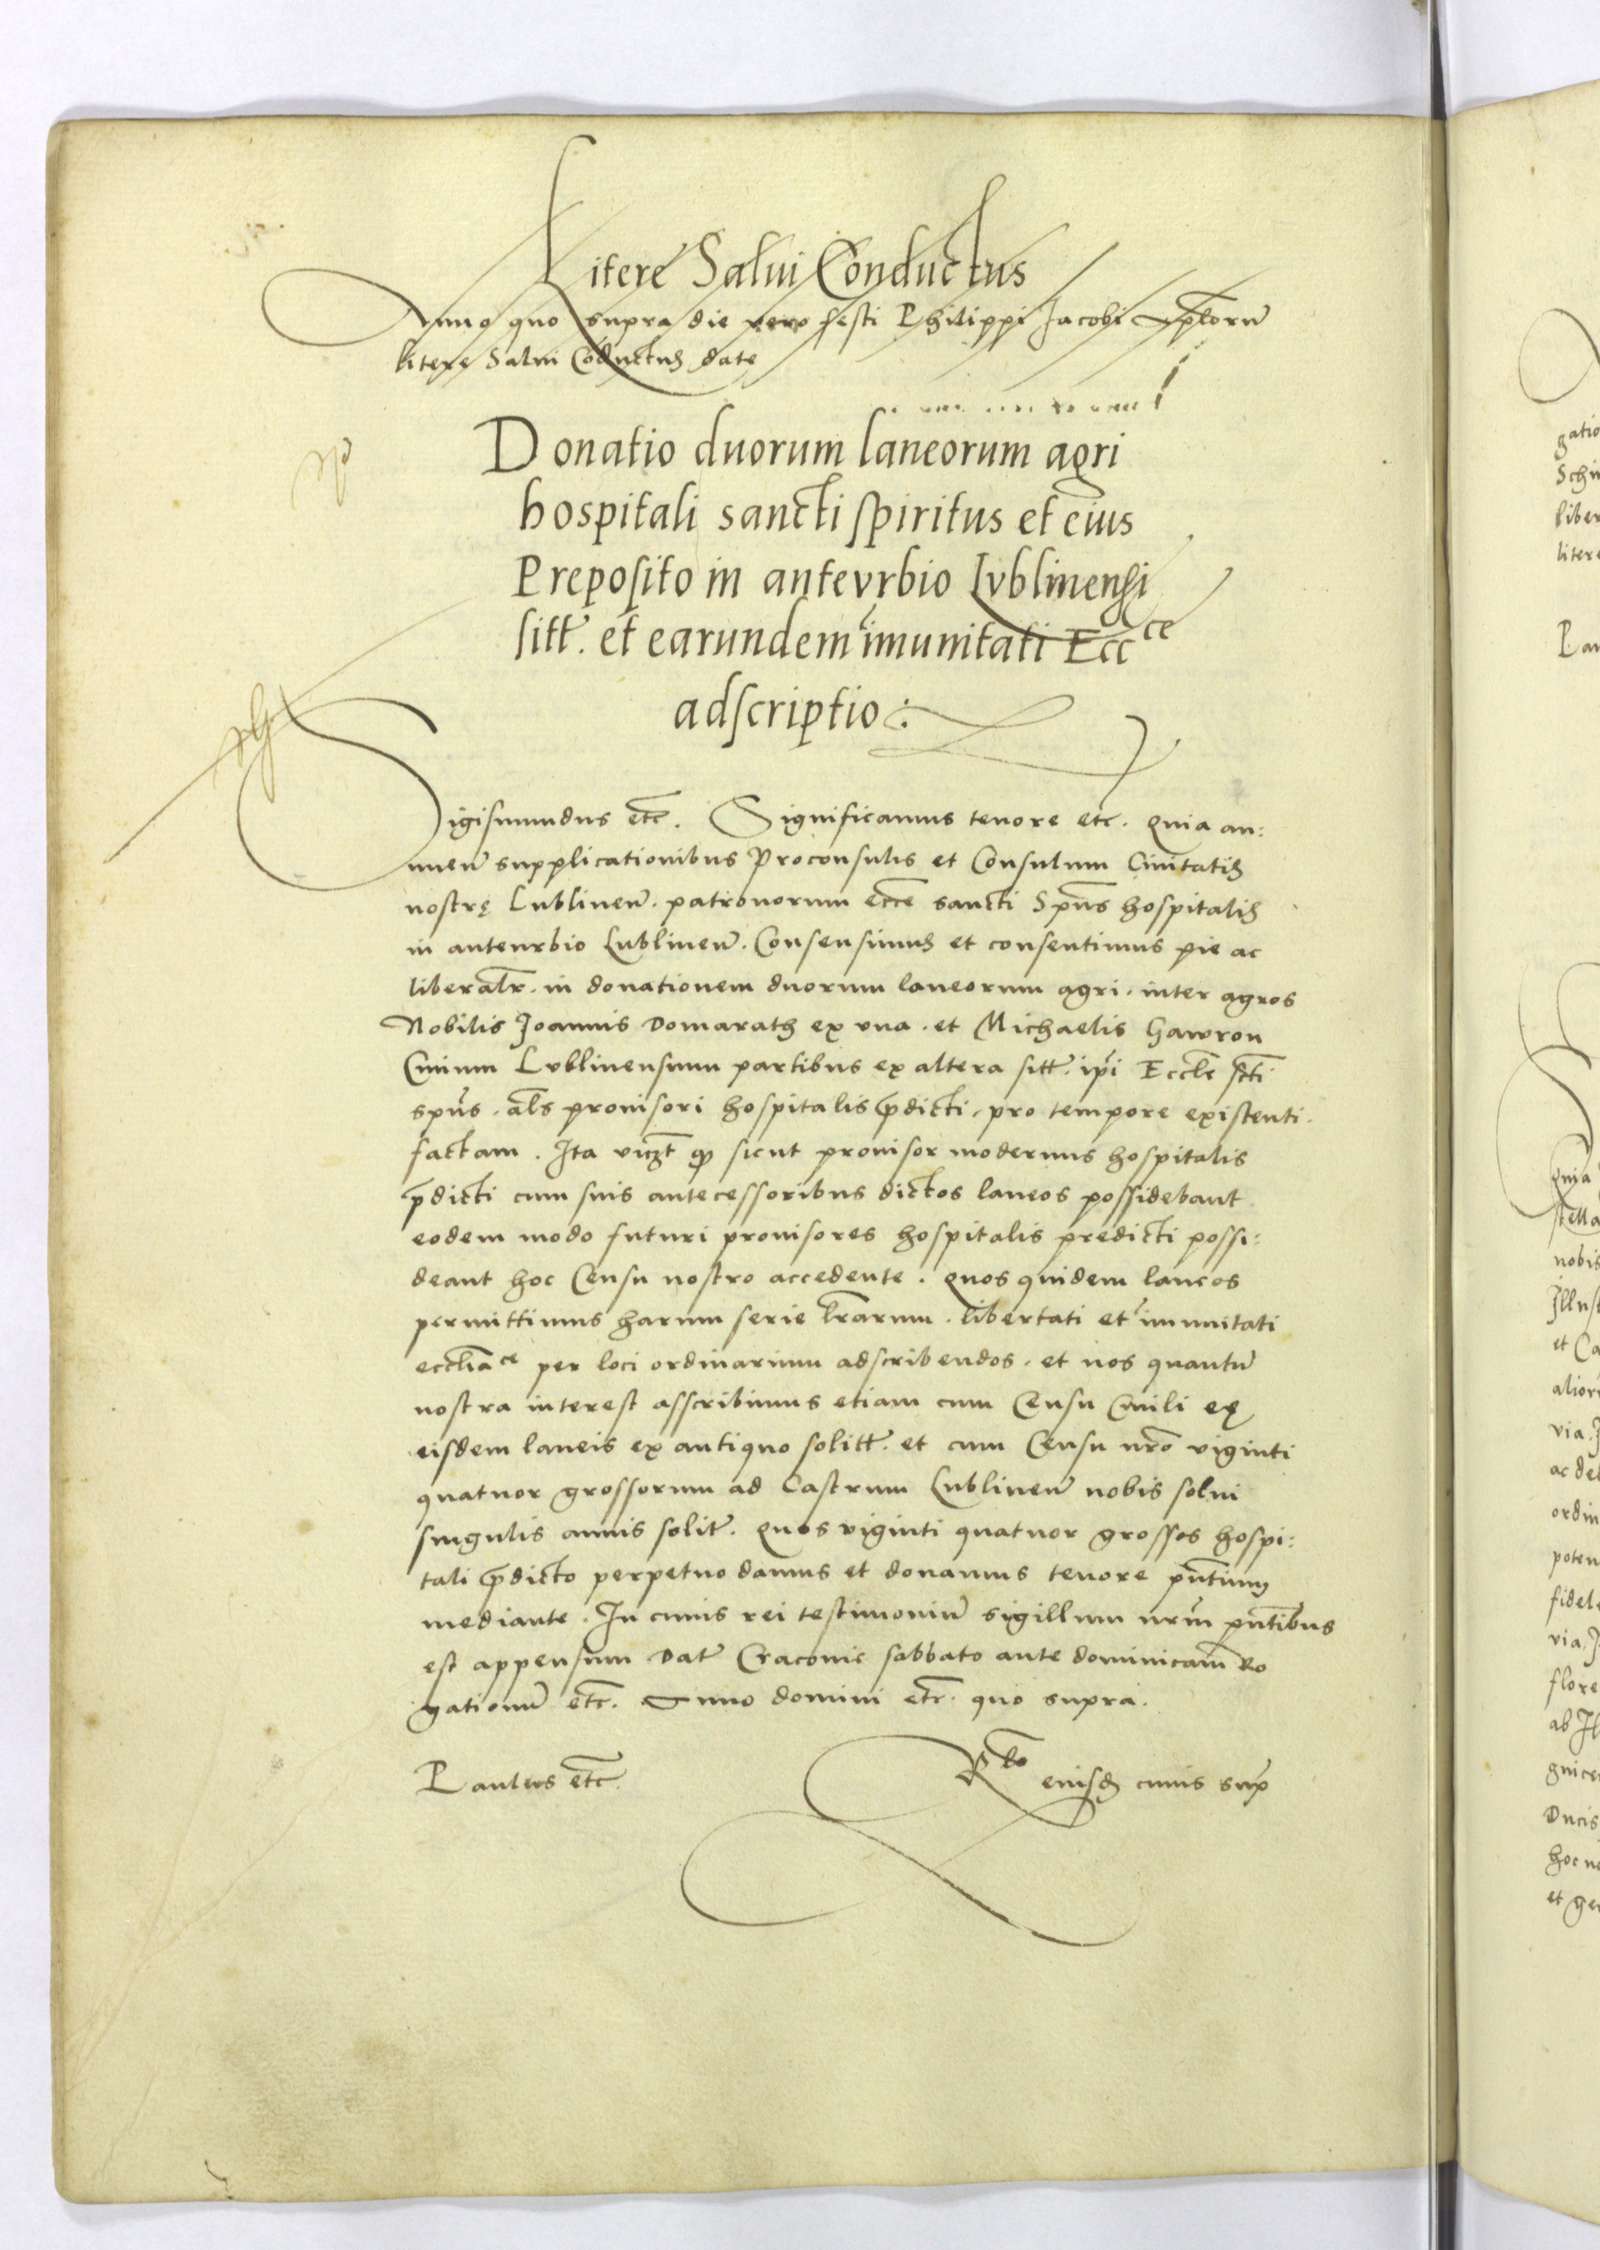 Litere Salui Conductus
Anno quo supra die vero festi Philippi Jacobi Aplorũ
litere Salui Cõductus date
Donatio duorum laneorum agri
hospitali sancti spiritus et eius
Preposito in antevrbio Lvblinensi
sitt̃. et earundem imunitati Eccce
adscriptio :
Sigismundus etc̃. Significamus tenore etc. Quia an:
nuen̄ supplicationibus Proconsulis et Consulum Ciuitatis
nostrę Lublinen̄. patronorum ecc̃e sancti Spũs hospitalis
in anteurbio Lublinen̄. Consensimus et consentimus pie ac
liberalr̃. in donationem duorum laneorum agri. inter agros
Nobilis Joannis Domarath ex vna. et Michaelis Gawron
Ciuium Lvblinensium partibus ex altera sitt̃. ip̃i Eccl̃e sc̃ti
spũs. al̃s prouisori hospitalis p̃dicti. pro tempore existenti.
factam. Ita vicz̃t qp sicut prouisor modernus hospitalis
p̃dicti cum suis antecessoribus dictos laneos possidebant
eodem modo futuri prouisores hospitalis predicti possi:
deant hoc Censu nostro accedente. Quos quidem laneos
permittimus harum serie lr̃arum. libertati et imunitati
eccl̃iace per loci ordinarium adscribendos. et nos quantũ
nostra interest asscribimus etiam cum Censu Ciuili ex
eisdem laneis ex antiquo solitt̃. et cum Censu nr̃o viginti
quatuor grossorum ad Castrum Lublinen̄ nobis solui
singulis annis solit̃. Quos viginti quatuor grossos hospi:
tali p̃dicto perpetuo damus et donamus tenore pñtium
mediante. In cuius rei testimoniũ sigillum nr̃m pñtibus
est appensum Dat̃ Cracouie sabbato ante dominicam Ro
gationũ etc̃. Anno domini etc̃. quo supra.
Paulus etc̃. Rdo eiusd cuius sup̃